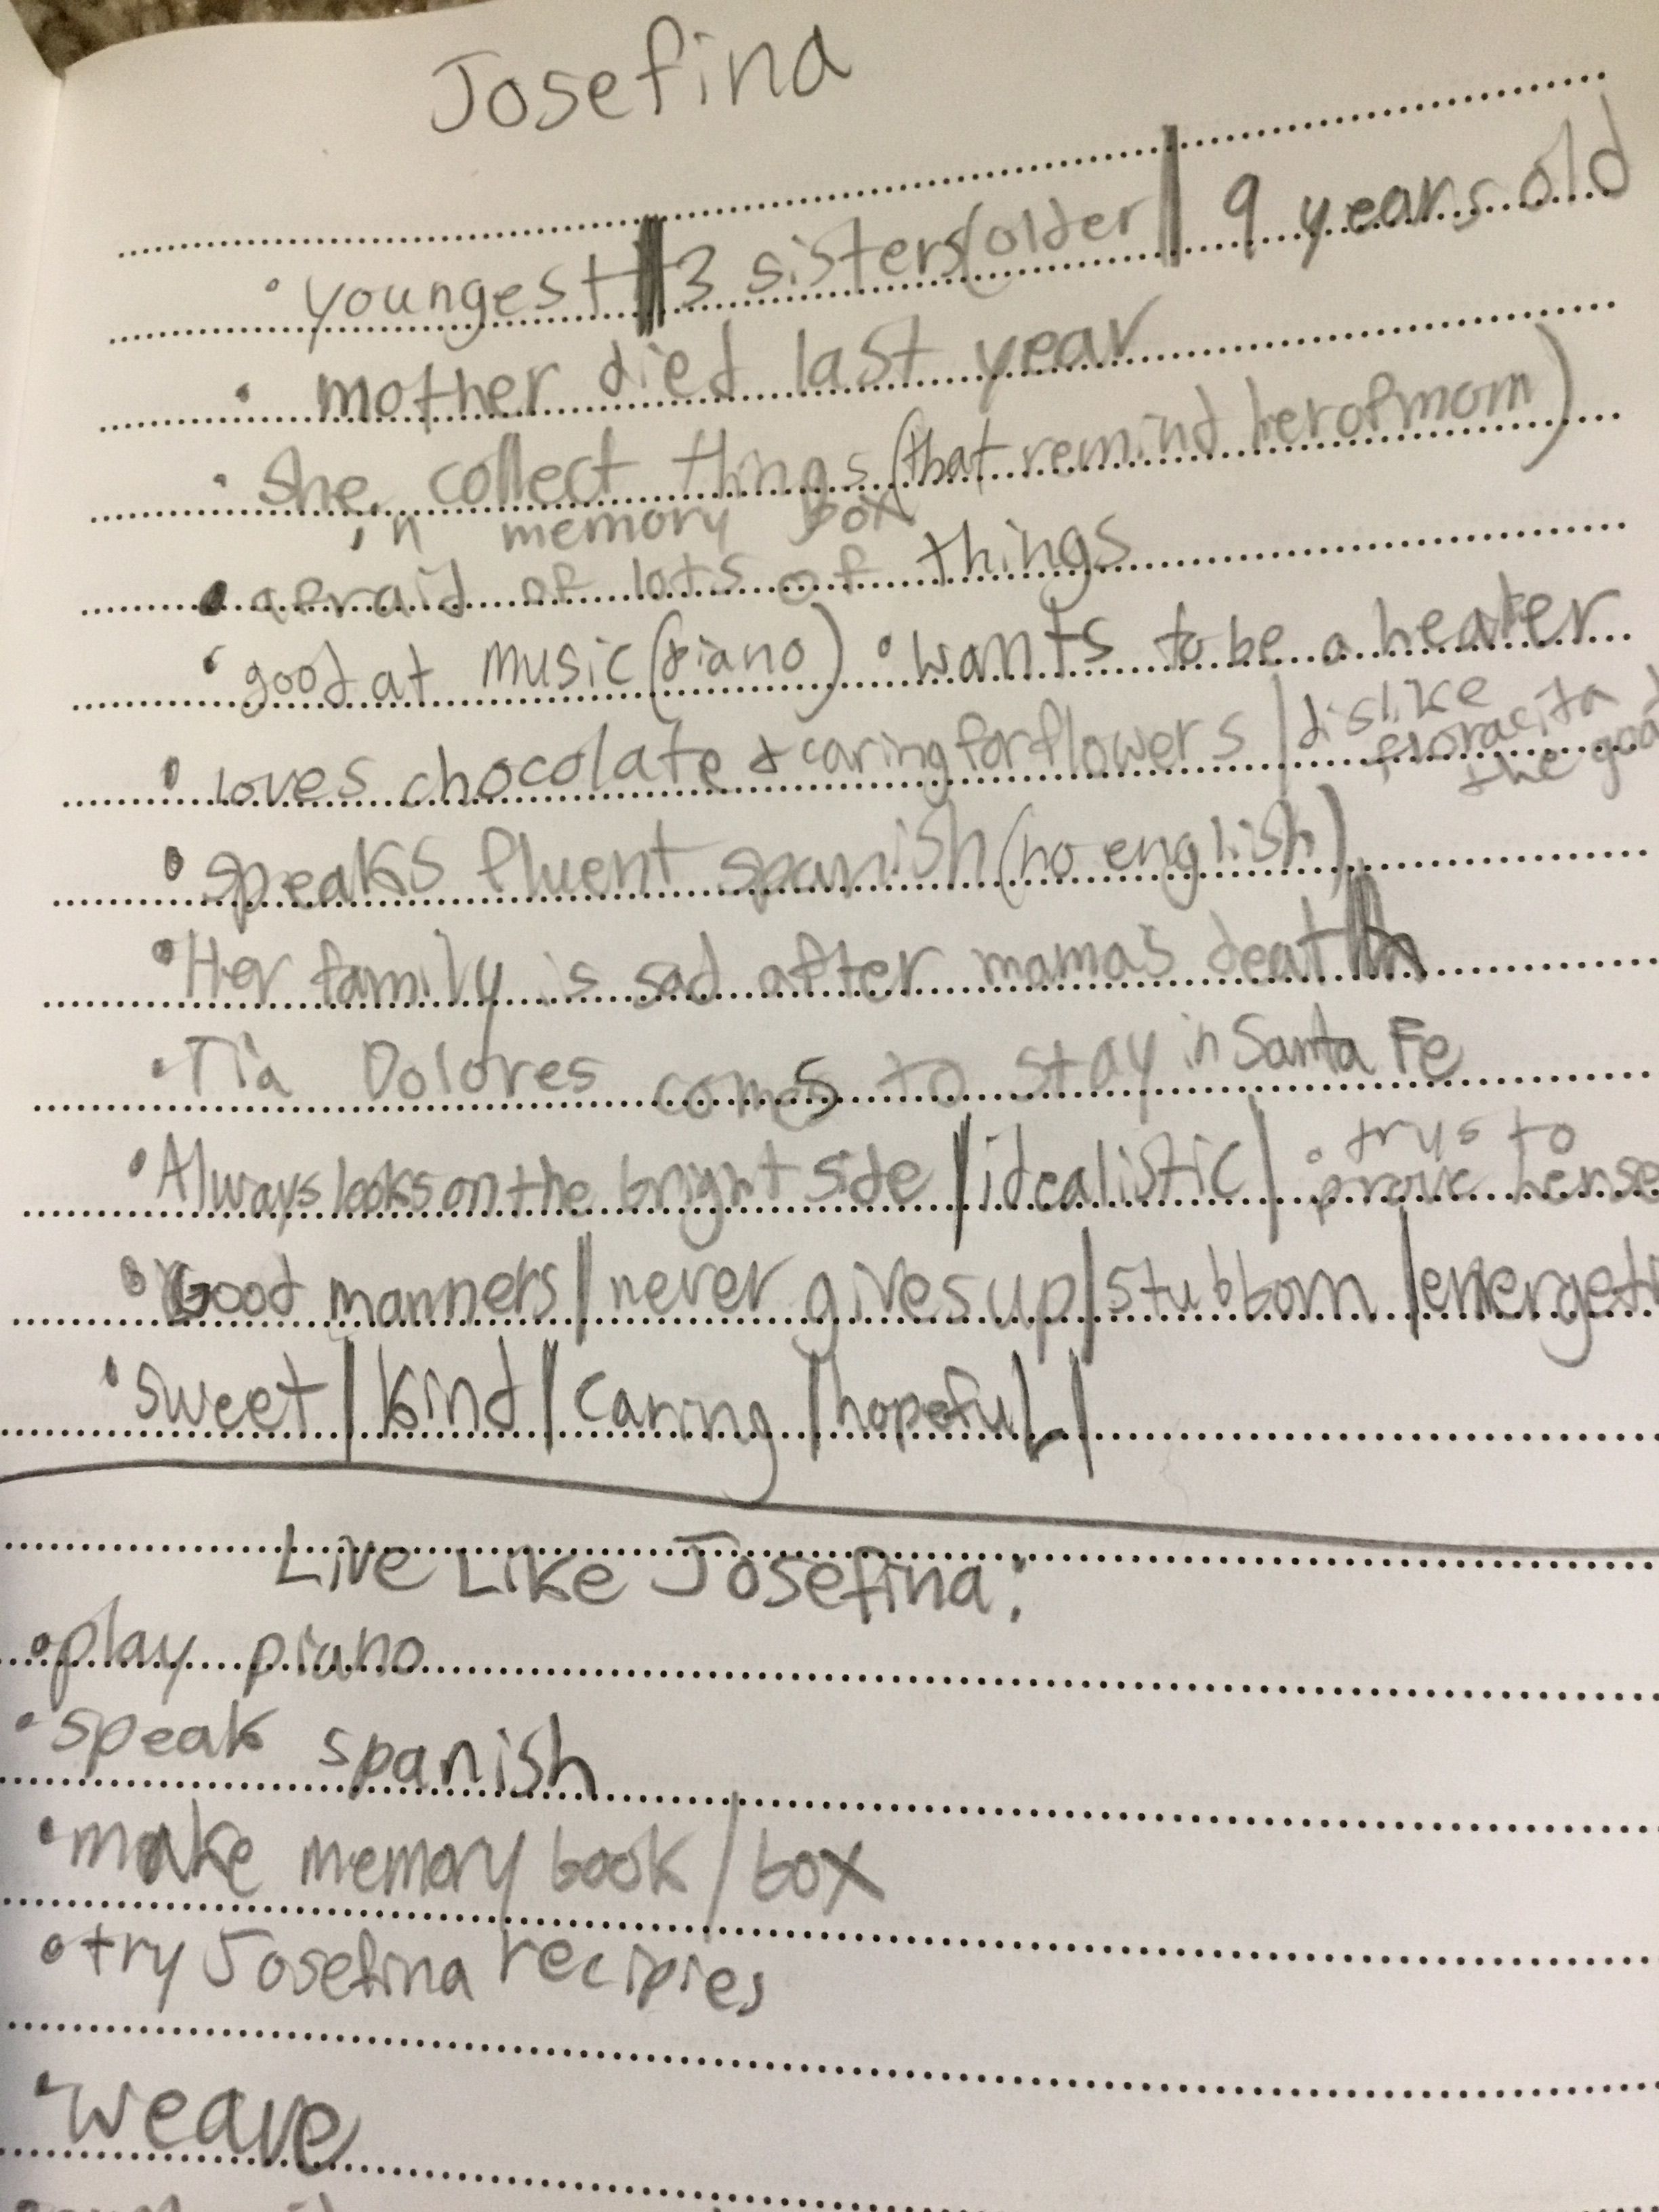 Josefina
• youngest | 3 sisters(older | 9 years old
• mother died last year
• She collect things (that remind her of mom)
in memory box
• afraid of lots of things
• good at music (piano) • wants to be a healer
• loves chocolate & caring for flowers | dislike
floracita
the goa
• speaks fluent spanish (no english)
• Her family is sad after mamas death
• Tia Dolores comes to stay in Santa Fe
• Always looks on the bright side | idealistic | • trys to
prove herse
• Good manners | never gives up | stubborn | energeti
• sweet | kind | caring | hopeful |
Live Like Josefina:
• play piano
• speak spanish
• make memory book / box
• try Josefina recipies
• weave